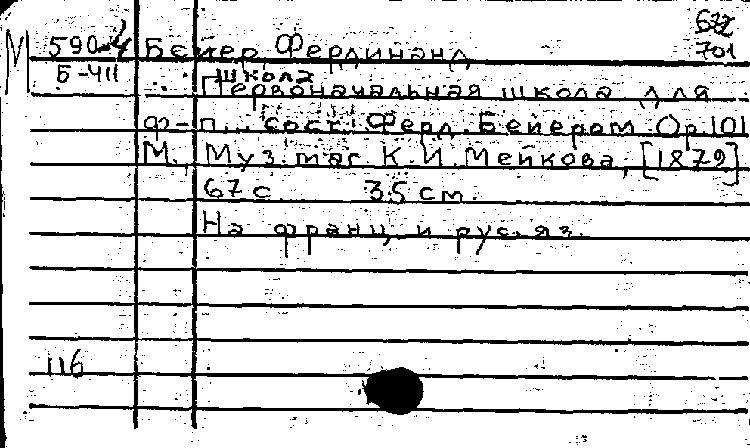 701
М 590-4 Бейер, Фердинанд
Б-411 школа
Первоначальная школа для
ф-п... сост. Ферд. Бейером. Op. 101
М., Муз. маг. К. И. Мейкова, [1879]
67 с. 35 см.
На франц. и рус. яз.
116